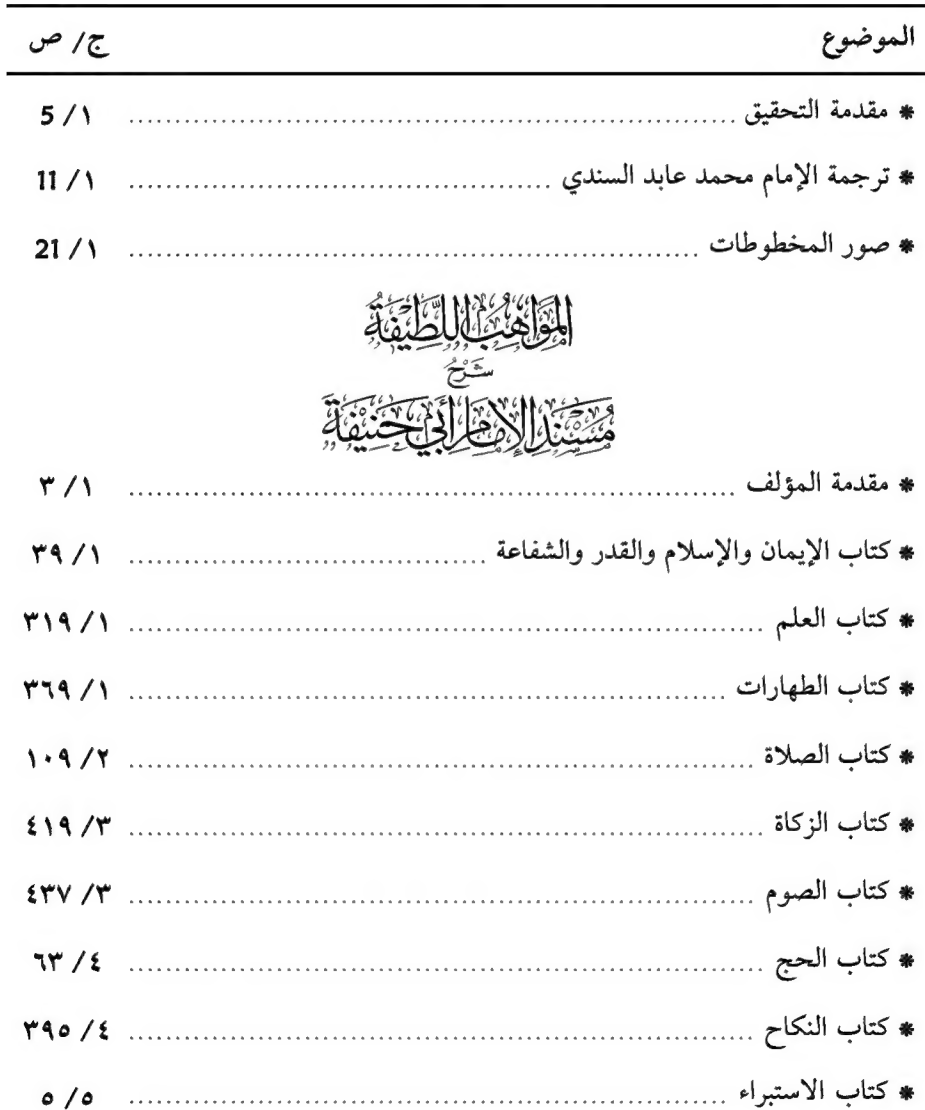 الموضوع ج/ ص
* مقدمة التحقيق ١/ 5
* ترجمة الإمام محمد عابد السندي ١/ 11
* صور المخطوطات ١/ 21
المَوَاهِبُ اللَّطِيْفَةُ
شَرْحُ
مُسْنَدِ الإِمَامِ أَبِيْ حَنِيْفَةَ
* مقدمة المؤلف ١/ ٣
* كتاب الإيمان والإسلام والقدر والشفاعة ١/ ٣٩
* كتاب العلم ١/ ٣١٩
* كتاب الطهارات ١/ ٣٦٩
* كتاب الصلاة ٢/ ١٠٩
* كتاب الزكاة ٣/ ٤١٩
* كتاب الصوم ٣/ ٤٣٧
* كتاب الحج ٤/ ٦٣
* كتاب النكاح ٤/ ٣٩٥
* كتاب الاستبراء ٥/ ٥